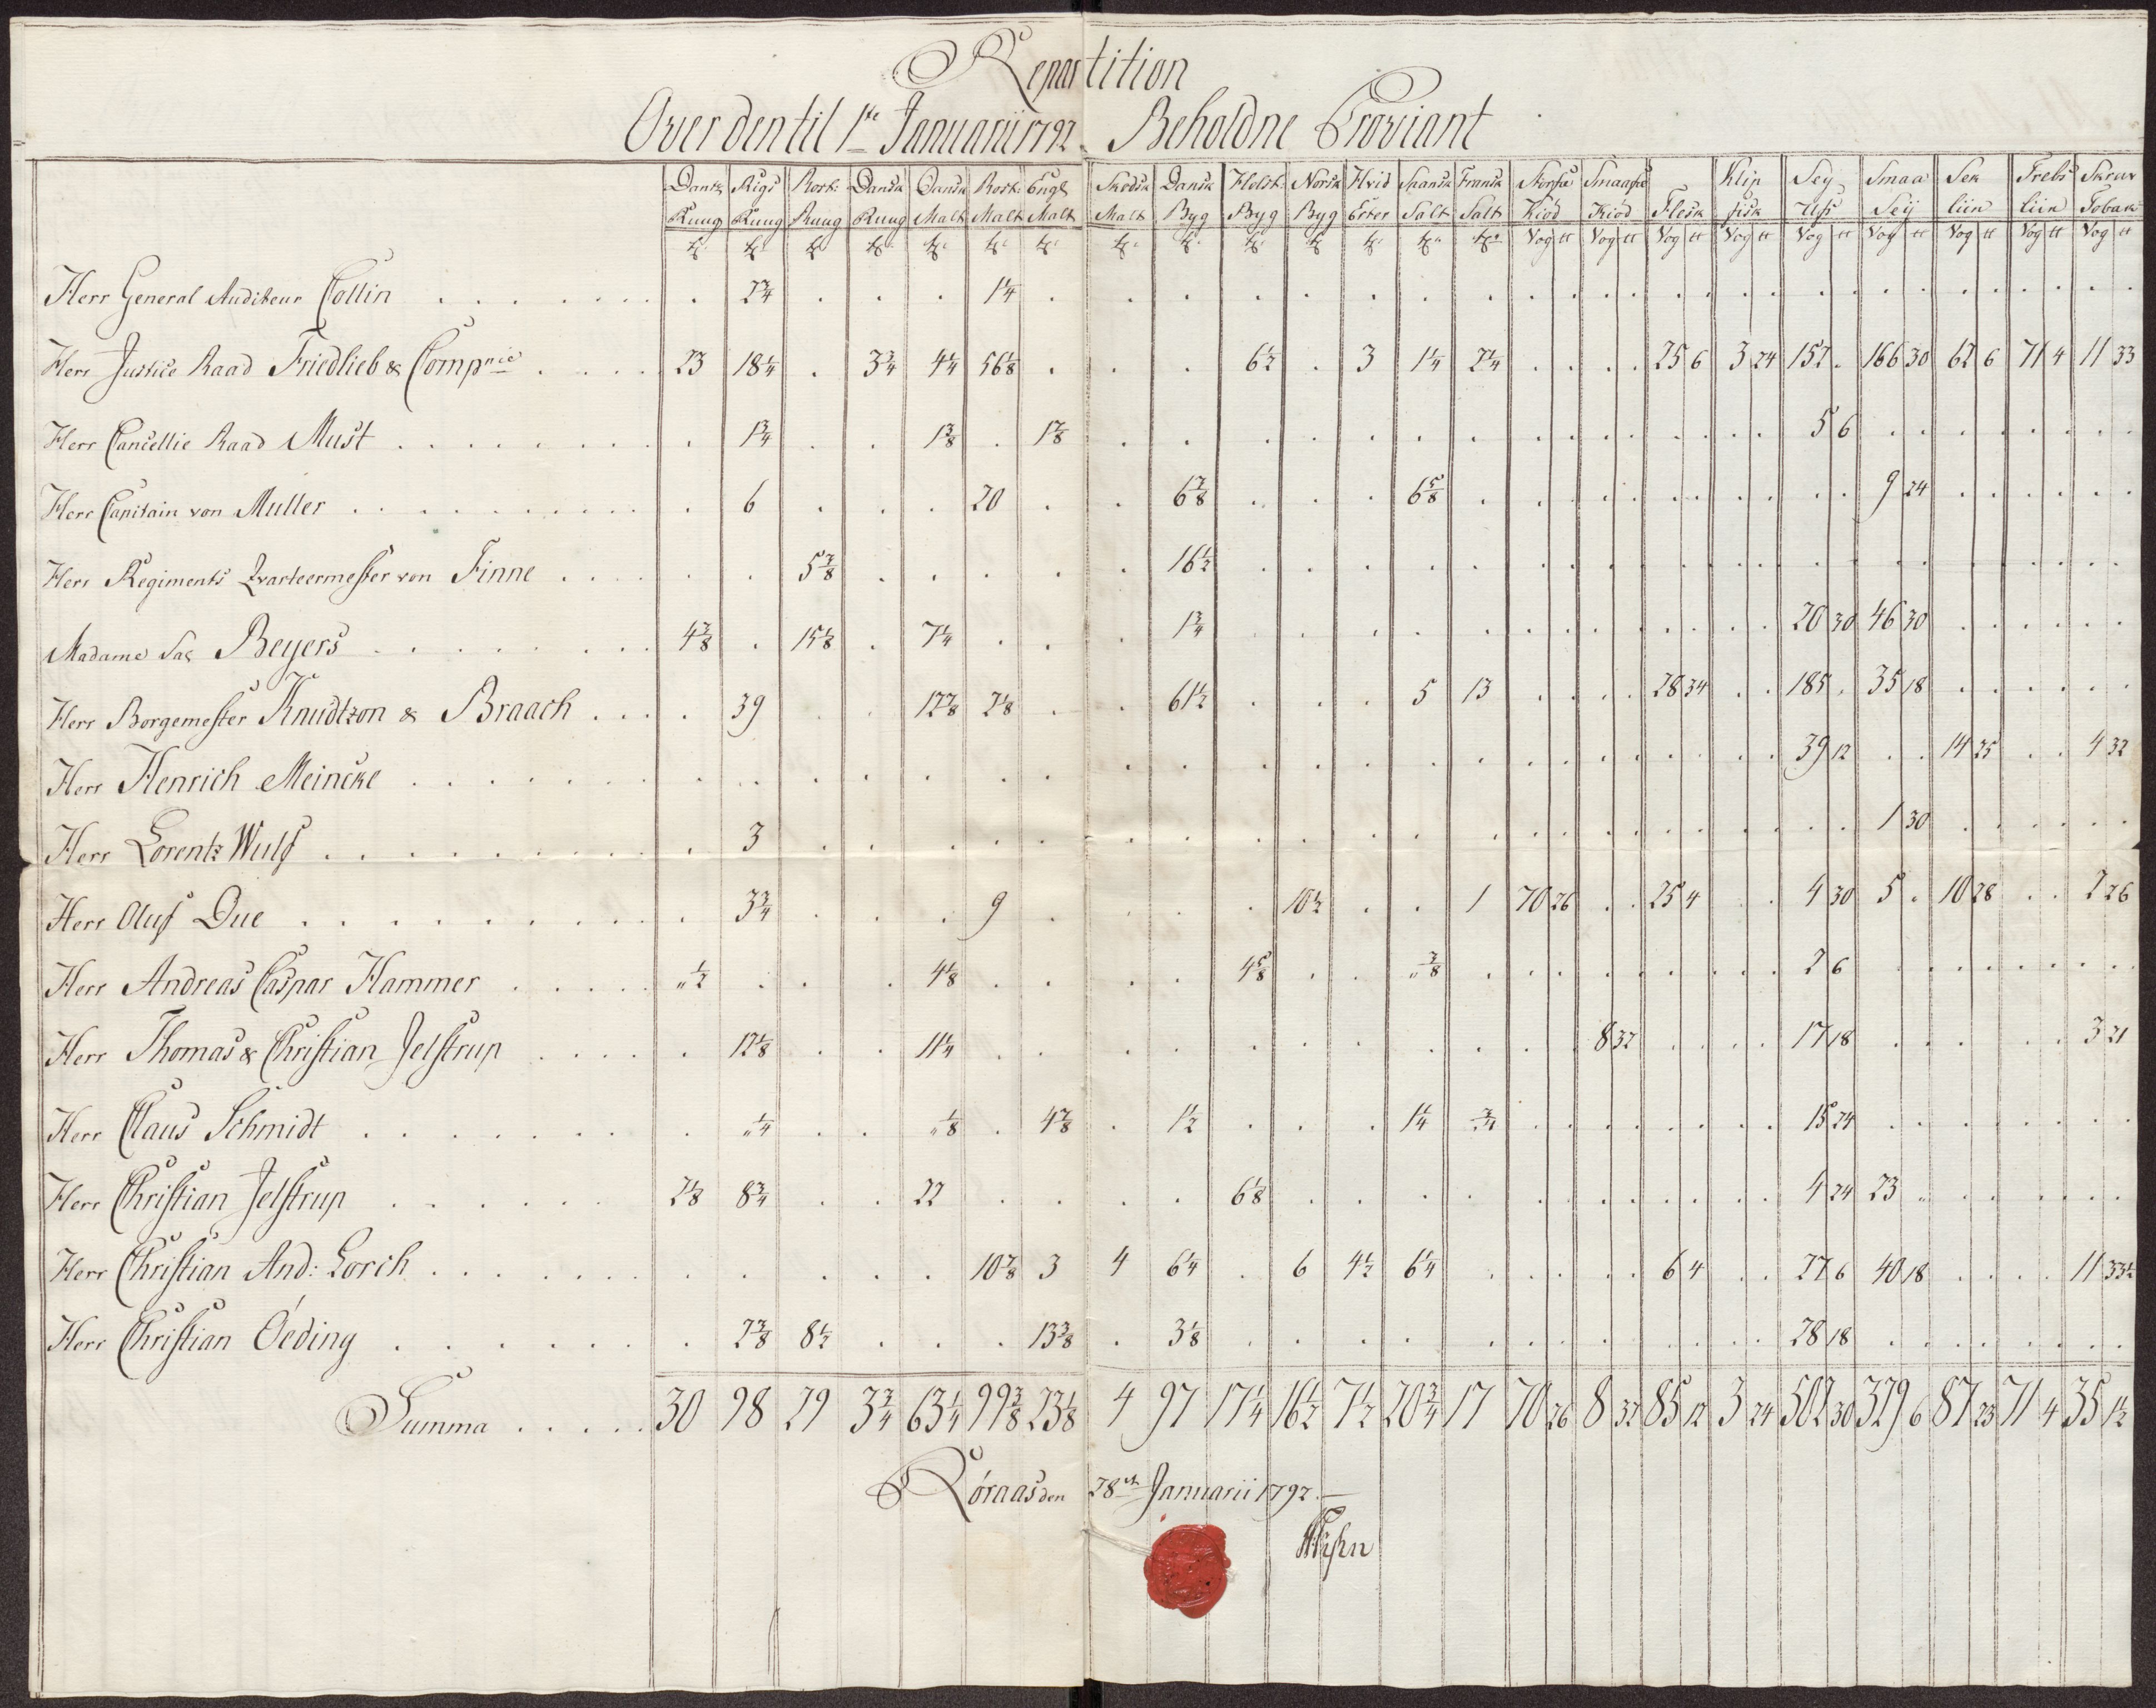 Repartition
Over den til 1ste Januarii 1792. Beholdne Proviant
Dantz Rigs Rost: Dansk Dansk Rost: Engl Skodsk Dansk Holst: Norsk Hvid Spansk Fransk Storfæ Smaafæ Klip Sey Smaa Sek Trebs Skruv
Ruug Ruug Ruug Ruug Malt Malt Malt Malt Byg Byg Byg Erter Salt Salt Kiød Kiød Flesk fisk Ufs Seij liin liin Tobak
Vog ℔ Vog ℔ Vog ℔ Vog ℔ Vog ℔ Vog ℔ Vog ℔ Vog ℔ Vog ℔
Herr General Auditeur Collin . . . . . . 2¾ . . . 1¼ .
Herr Justice Raad Friedlieb & Compnie . . . . 23 18¼ . 3¾ 4¼ 56⅛ . . . 6½ . 3 1¼ 2¼ . . . . 25 6 3 24 152 . 166 30 62 6 71 4 11 33
Herr Cancellie Raad Must . . . . . . . . 1¾ . . 1⅜ . 1⅞ . . . 5 6 . .
Herr Capitain von Muller . . . . . . . . . 6 . . . 20 . . 6⅞ . . . 6⅝ . . . 9 24 . .
Herr Regiments Qvarteermester von Finne . . . . 5⅜ . . . . . 16½ . .
Madame Sal Beyers . . . . . . . . 4⅜ . 15⅛ . 7¼ . . . 1¾ . . . 20 30 46 30 . .
Herr Borgemester Knudtzon & Braach . . . . 39 . . 12⅞ 2⅛ . . 61½ . . . 5 13 . . . . 28 34 . . 185 . 35 18 . .
Herr Henrich Meincke . . . . . . . . . 39 12 . . 14 25 . . 4 32
Herr Lorentz Wulf . . . . . . . . . 3 . . . 1 30 . .
Herr Oluf Due . . . . . . . . . 3¾ . . . 9 . . . . 10½ . . 1 70 26 . . 25 4 . . 4 30 5 . 10 28 . . 2 26
Herr Andreas Caspar Hammer . . . . . „½ . . . 4⅛ . . . . 4⅝ . . „⅞ . . . 2 6 . .
Herr Thomas & Christian Jelstrup . . . . . 12⅛ . . 11¼ . . . . . 8 32 . . . . 17 18 . . . . . . 3 21
Herr Claus Schmidt . . . . . . . „¼ . . „⅛ . 4⅞ . 1½ . . . 1¼ „¾ . . . 15 24 . .
Herr Christian Jelstrup . . . . . . 2⅛ 8¾ . . 22 . . . . 6⅛ . . . 4 24 23 . .
Herr Christian And: Lorch . . . . . . . . . . 10⅞ 3 4 6¼ . 6 4½ 6¼ . . . . . 6 4 . . 27 6 40 18 . . . . 11 33½
Herr Christian Öeding . . . . . . . 2⅜ 8½ . . . 13⅜ . 3⅛ . . . 28 18 . .
Summa . . . . . 30 98 29 3¾ 63¼ 99⅜ 23⅛ 4 97 17¼ 16½ 7½ 20¾ 17 70 26 8 32 85 12 3 24 502 30 329 6 87 23 71 4 35 1½
Röraas den 28de Januarii 1792.